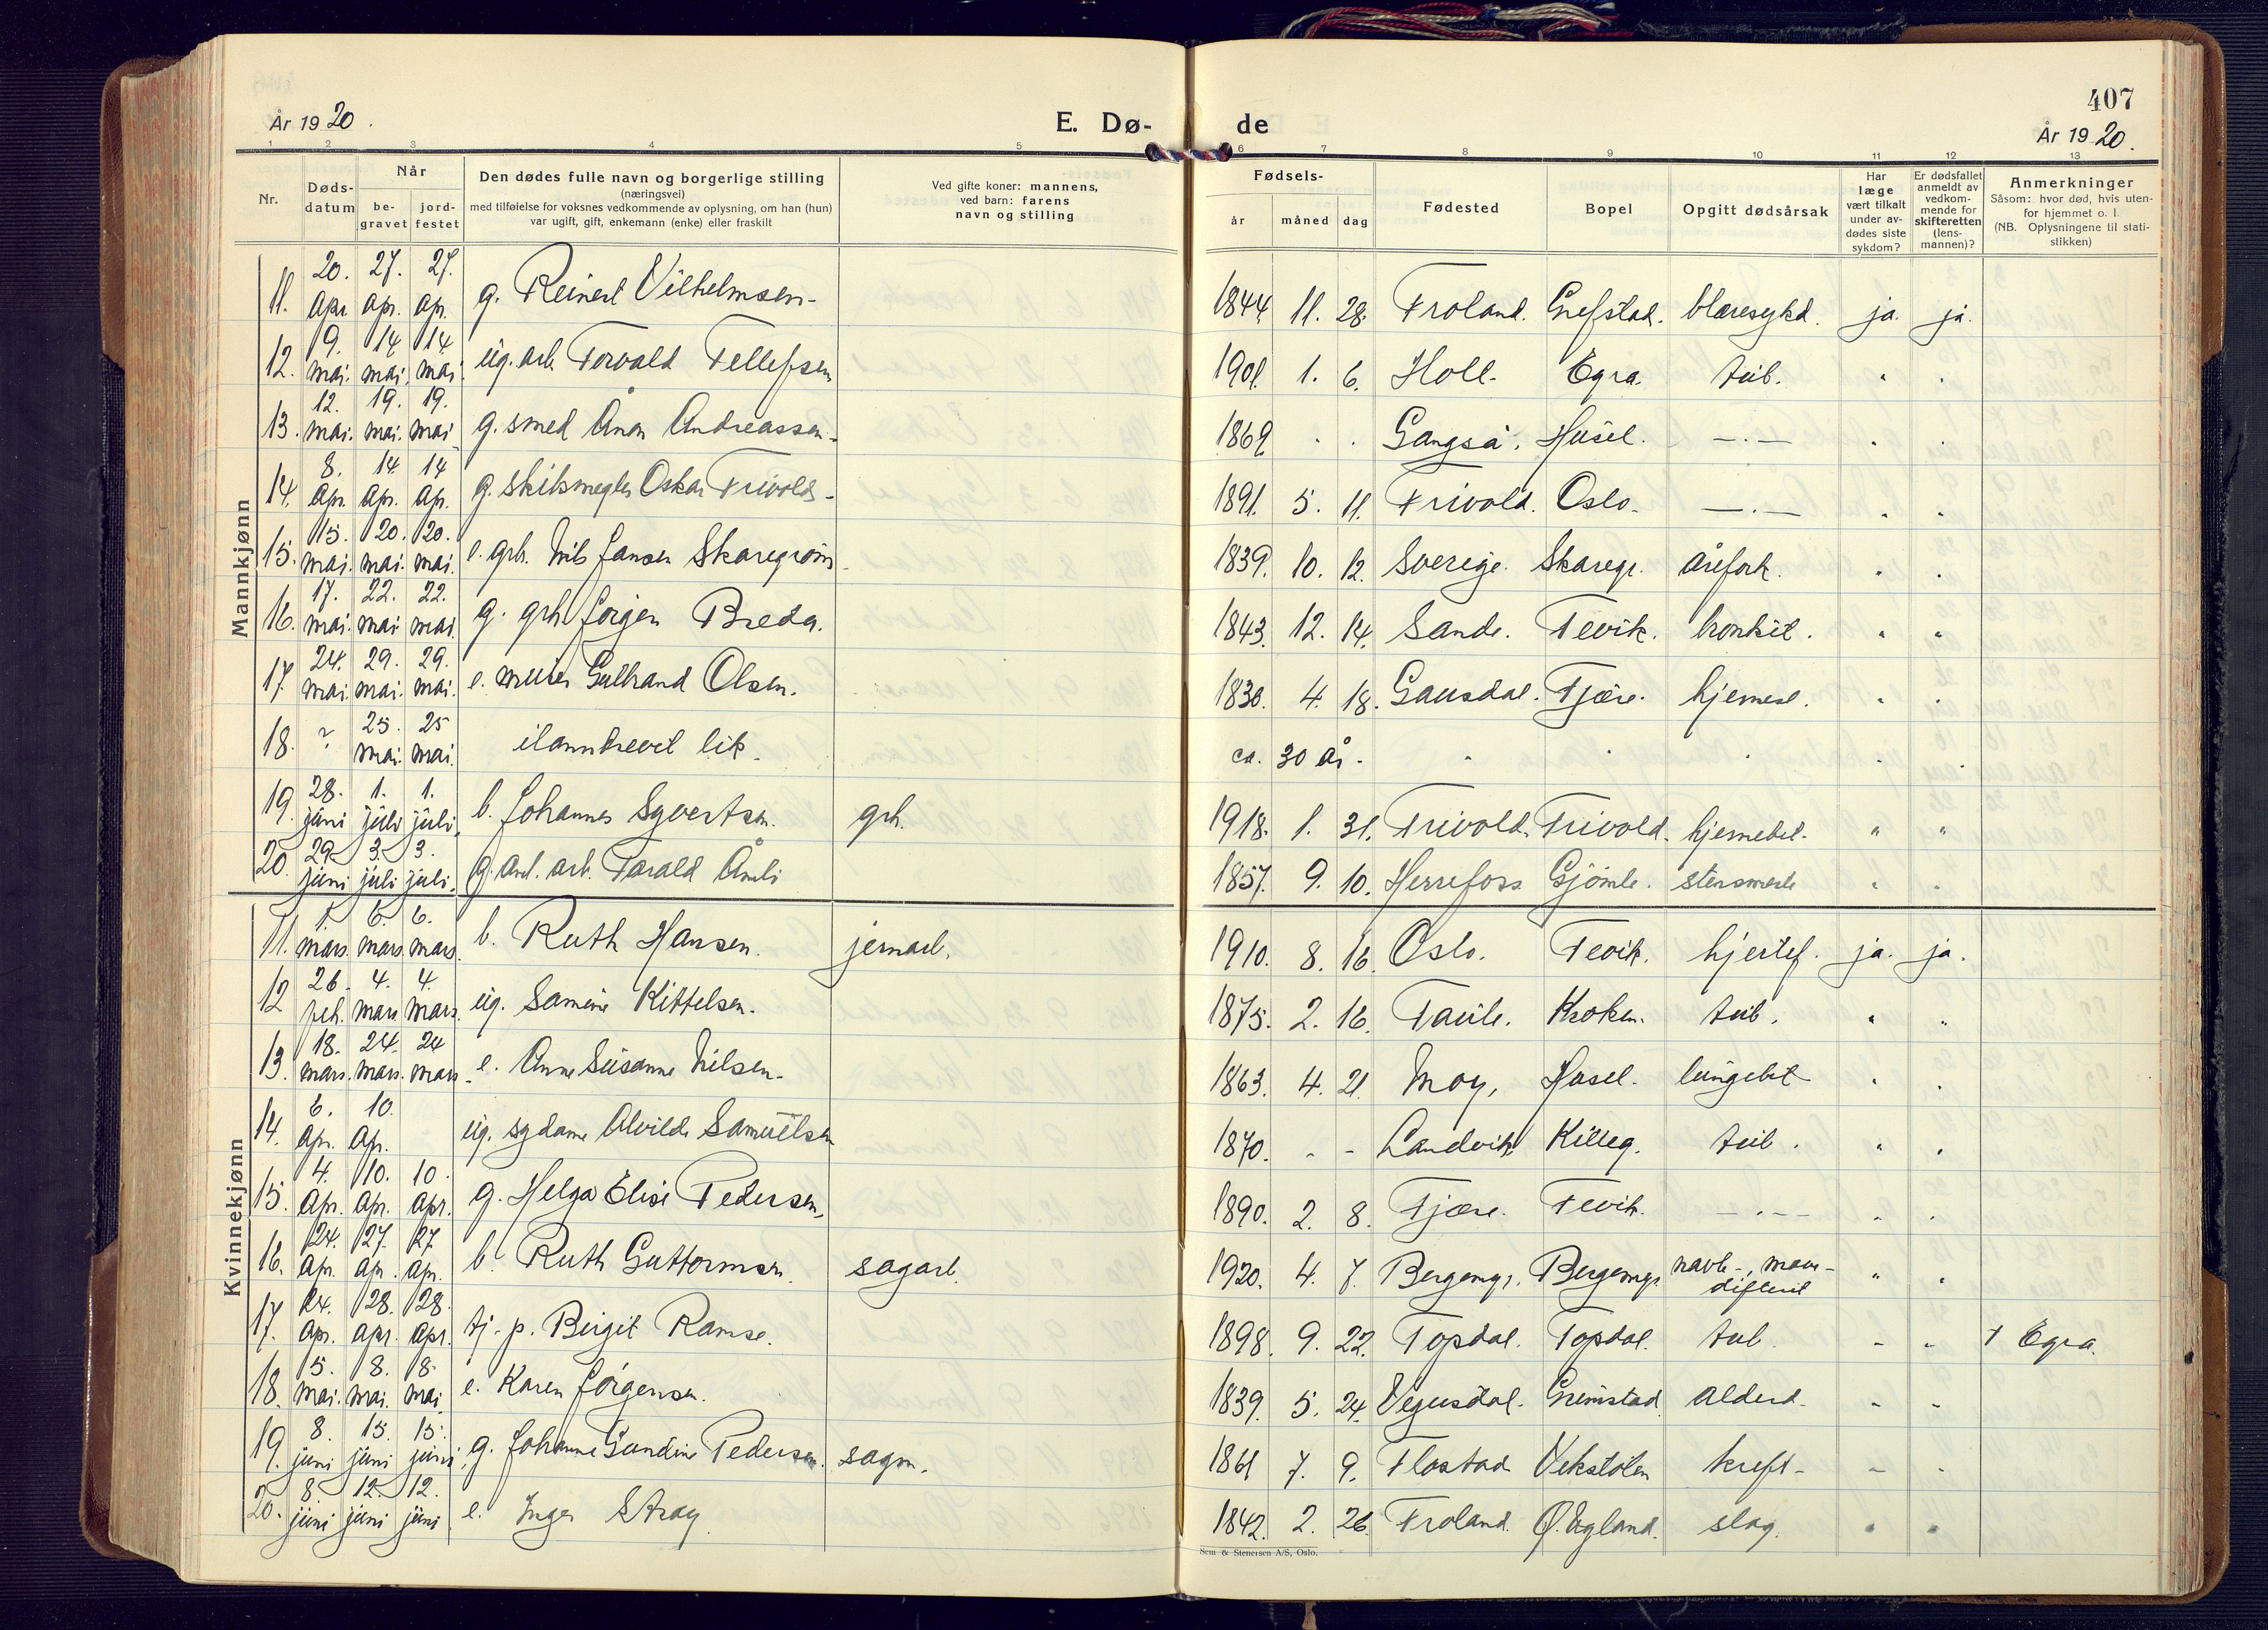 407
År 1920.
E. Dø-
de
År 1920.
1 2 3 4 5 6 7 8 9 10 11 12 13
Nr.
Døds-
datum
Når
be-
gravet
jord-
festet
Den dødes fulle navn og borgerlige stilling
(næringsvei)
med tilføielse for voksnes vedkommende av oplysning, om han (hun)
var ugift, gift, enkemann (enke) eller fraskilt
Ved gifte koner: mannens,
ved barn: farens
navn og stilling
Fødsels-
år måned dag
Fødested
Bopel
Opgitt dødsårsak
Har
læge
vært tilkalt
under av-
dødes siste
sykdom?
Er dødsfallet
anmeldt av
vedkom-
mende for
skifteretten
(lens-
mannen)?
Anmerkninger
Såsom: hvor død, hvis uten-
for hjemmet o. l.
(NB. Oplysningene til stati-
stikken)
Mannkjønn
11. 20. apr. 27. apr. 27. apr. g. Reinert Vilhelmsen- 1844 11. 28. Froland. Grefstad. blæresykd. ja. ja.
12. 9. mai. 14 mai. 14 mai. ug. arb. Torvald Tellefsen 1901. 1. 6. Holl. Egra. tub. " "
13. 12. mai. 19. mai. 19. mai g. smed Ånon Andreassen. 1869 . . Gangså. Husel. -.- . .
14. 8. Apr. 14 Apr. 14 Ap. g. skibsmegler Oskar Frivold- 1891. 5. 11. Frivold. Oslo. -.- " "
15. 15. mai. 20. mai. 20. mai. e. grb. Nils Jansen Skaregrøm 1839. 10. 12. Sverige. Skaregr. årefork. " "
16. 17. mai. 22. mai 22. mai. g. grb. Jørgen Breda. 1843. 12. 14. Sande. Fevik. bronkit. " "
17. 24. mai. 29. mai. 29. mai. e. murer Gulbrand Olsen. 1830. 4. 18. Gausdal. Fjære. hjernesl. " "
18. ? 25. mai. 25 mai. ilanndrevet lik. ca. 30 år. " " " " "
19. 28. juni 1. juli 1. juli. b. Johannes Syvertsen. grb. 1918. 1. 31. Frivold. Frivold. hjernebet. " "
20. 29. juni 3. juli 3. juli. g. arb. Tarald Åmli 1857. 9. 10. Herrefoss Gjømle. " "
Kvinnekjønn
11. 1. mars 6. mars 6. mars. b. Ruth Hansen. jernarb. 1910. 8. 16. Oslo. Fevik. hjertef. ja. ja.
12 26. feb. 4. mars 4. mars. ug. Samine Kittelsen. 1875. 2. 16. Kroken. tub. " "
13. 18. mars. 24. mars. 24 mars. e. Anne Susanne Nilsen. 1863. 4. 21. Moy, Hasel. lungebet " "
14. 6. Apr. 10. Apr. ug. sydame Alvilde Samuelsen 1870. - - Landvik Killeg. tub. " "
15. 4. Apr. 10. Apr. 10. apr. g. Helga Elise Pedersen. 1890. 2. 8. Fjære. Fevik. -.- " "
16. 24. Apr. 27. Apr. 27 apr. b. Ruth Guttormsen. sagarb. 1920. 4. 7. Bergemyr. Bergemyr. navle-,
difterit " "
17. 24. Apr. 28. Apr. 28. apr. tj-p. Birgit Ramse. 1898. 9. 22. Topdal. Topdal. tub. " " † Egra.
18. 5. mai. 8. mai. 8. mai. e. Karen Jørgensen. 1839. 5. 24. Vegusdal. Grimstad alderd. " "
19. 8. juni 15. juni 15. juni. g. Johanne Gundine Pedersen. sagm. 1861 7. 9. Flostad Vekstolen kreft- " "
20. 8. juni 12. juni 12. juni e. Inger Stray. 1842. 2. 26. Froland. Ø. Egland. slag. " "
Sem & Stenersen A/S, Oslo.